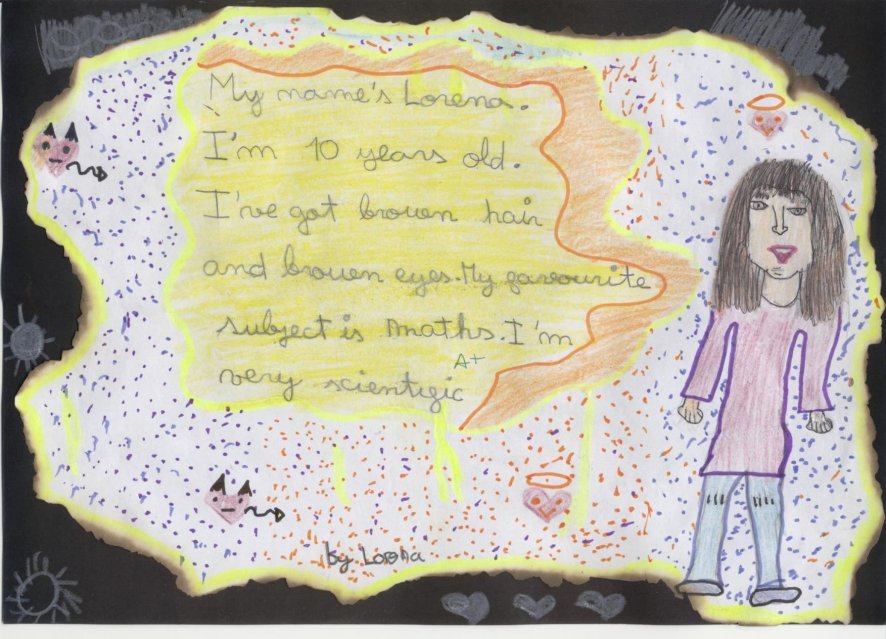 My name's Lorena.
I'm 10 years old.
I've got brown hair
and brown eyes. My favourite
subject is maths. I'm
A+
very scientific
by Lorena